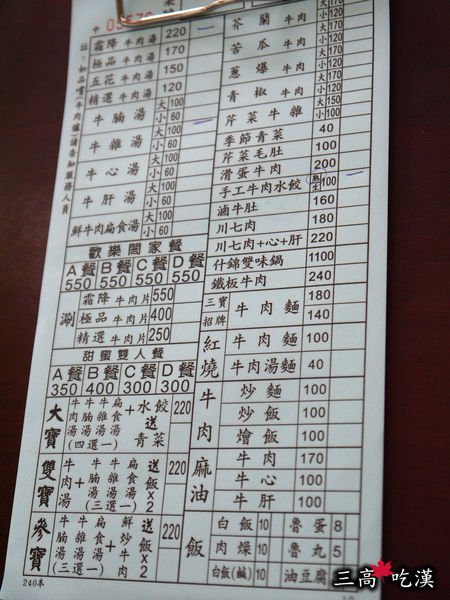 霜降牛肉湯 220
極品牛肉湯 170
五花牛肉湯 150
精選牛肉湯 120
牛腩湯 大100 小60
牛雜湯 大100 小60
牛心湯 大100 小60
牛肝湯 大100 小60
鮮牛肉扁食湯 大100 小60
歡樂閤家餐
A餐 550 B餐 550 C餐 550 D餐 550
涮
霜降牛肉片 550
極品牛肉片 400
精選牛肉片 250
甜蜜雙人餐
A餐 350 B餐 400 C餐 300 D餐 300
大寶 牛肉湯 牛腩湯 牛雜湯 扁食湯 (四選一) + 水餃 送青菜 220
雙寶 牛肉湯 + 牛腩湯 牛雜湯 扁食湯 (三選一) 送飯x2 220
參寶 牛腩湯 牛雜湯 扁食湯 (三選一) + 鮮炒牛肉 送飯x2 220
240本
芥蘭牛肉
苦瓜牛肉 大170 小120
蔥爆牛肉 大170 小120
青椒牛肉 大170 小120
芹菜牛雜 大170 小120
季節青菜 40
芹菜毛肚 100
滑蛋牛肉 200
手工牛肉水餃 熟 生 100
滷牛肚 160
川七肉 180
川七肉+心+肝 220
什錦雙味鍋 1100
鐵板牛肉 240
三寶 招牌 牛肉麵 180 140
紅燒 牛肉麵 100
牛肉湯麵 40
牛肉
炒麵 100
炒飯 100
燴飯 100
麻油
牛肉 170
牛心 100
牛肝 100
飯
白飯 10 魯蛋 8
肉燥 10 魯丸 5
白飯(鹹) 10 油豆腐
三高吃漢